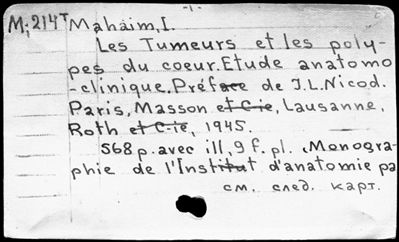 -1-
M;214т Mahaim,I.
Les Tumeurs et les poly-
pes du coeur.Etude anatomo
-clinique.Préface de J.L.Nicod.
Paris, Masson et Cie, Lausanne,
Roth et C-ie, 1945.
568 p. avec ill, 9 f. pl. (Monogra-
phie de l'Institut d'anatomie pa
см. след. карт.